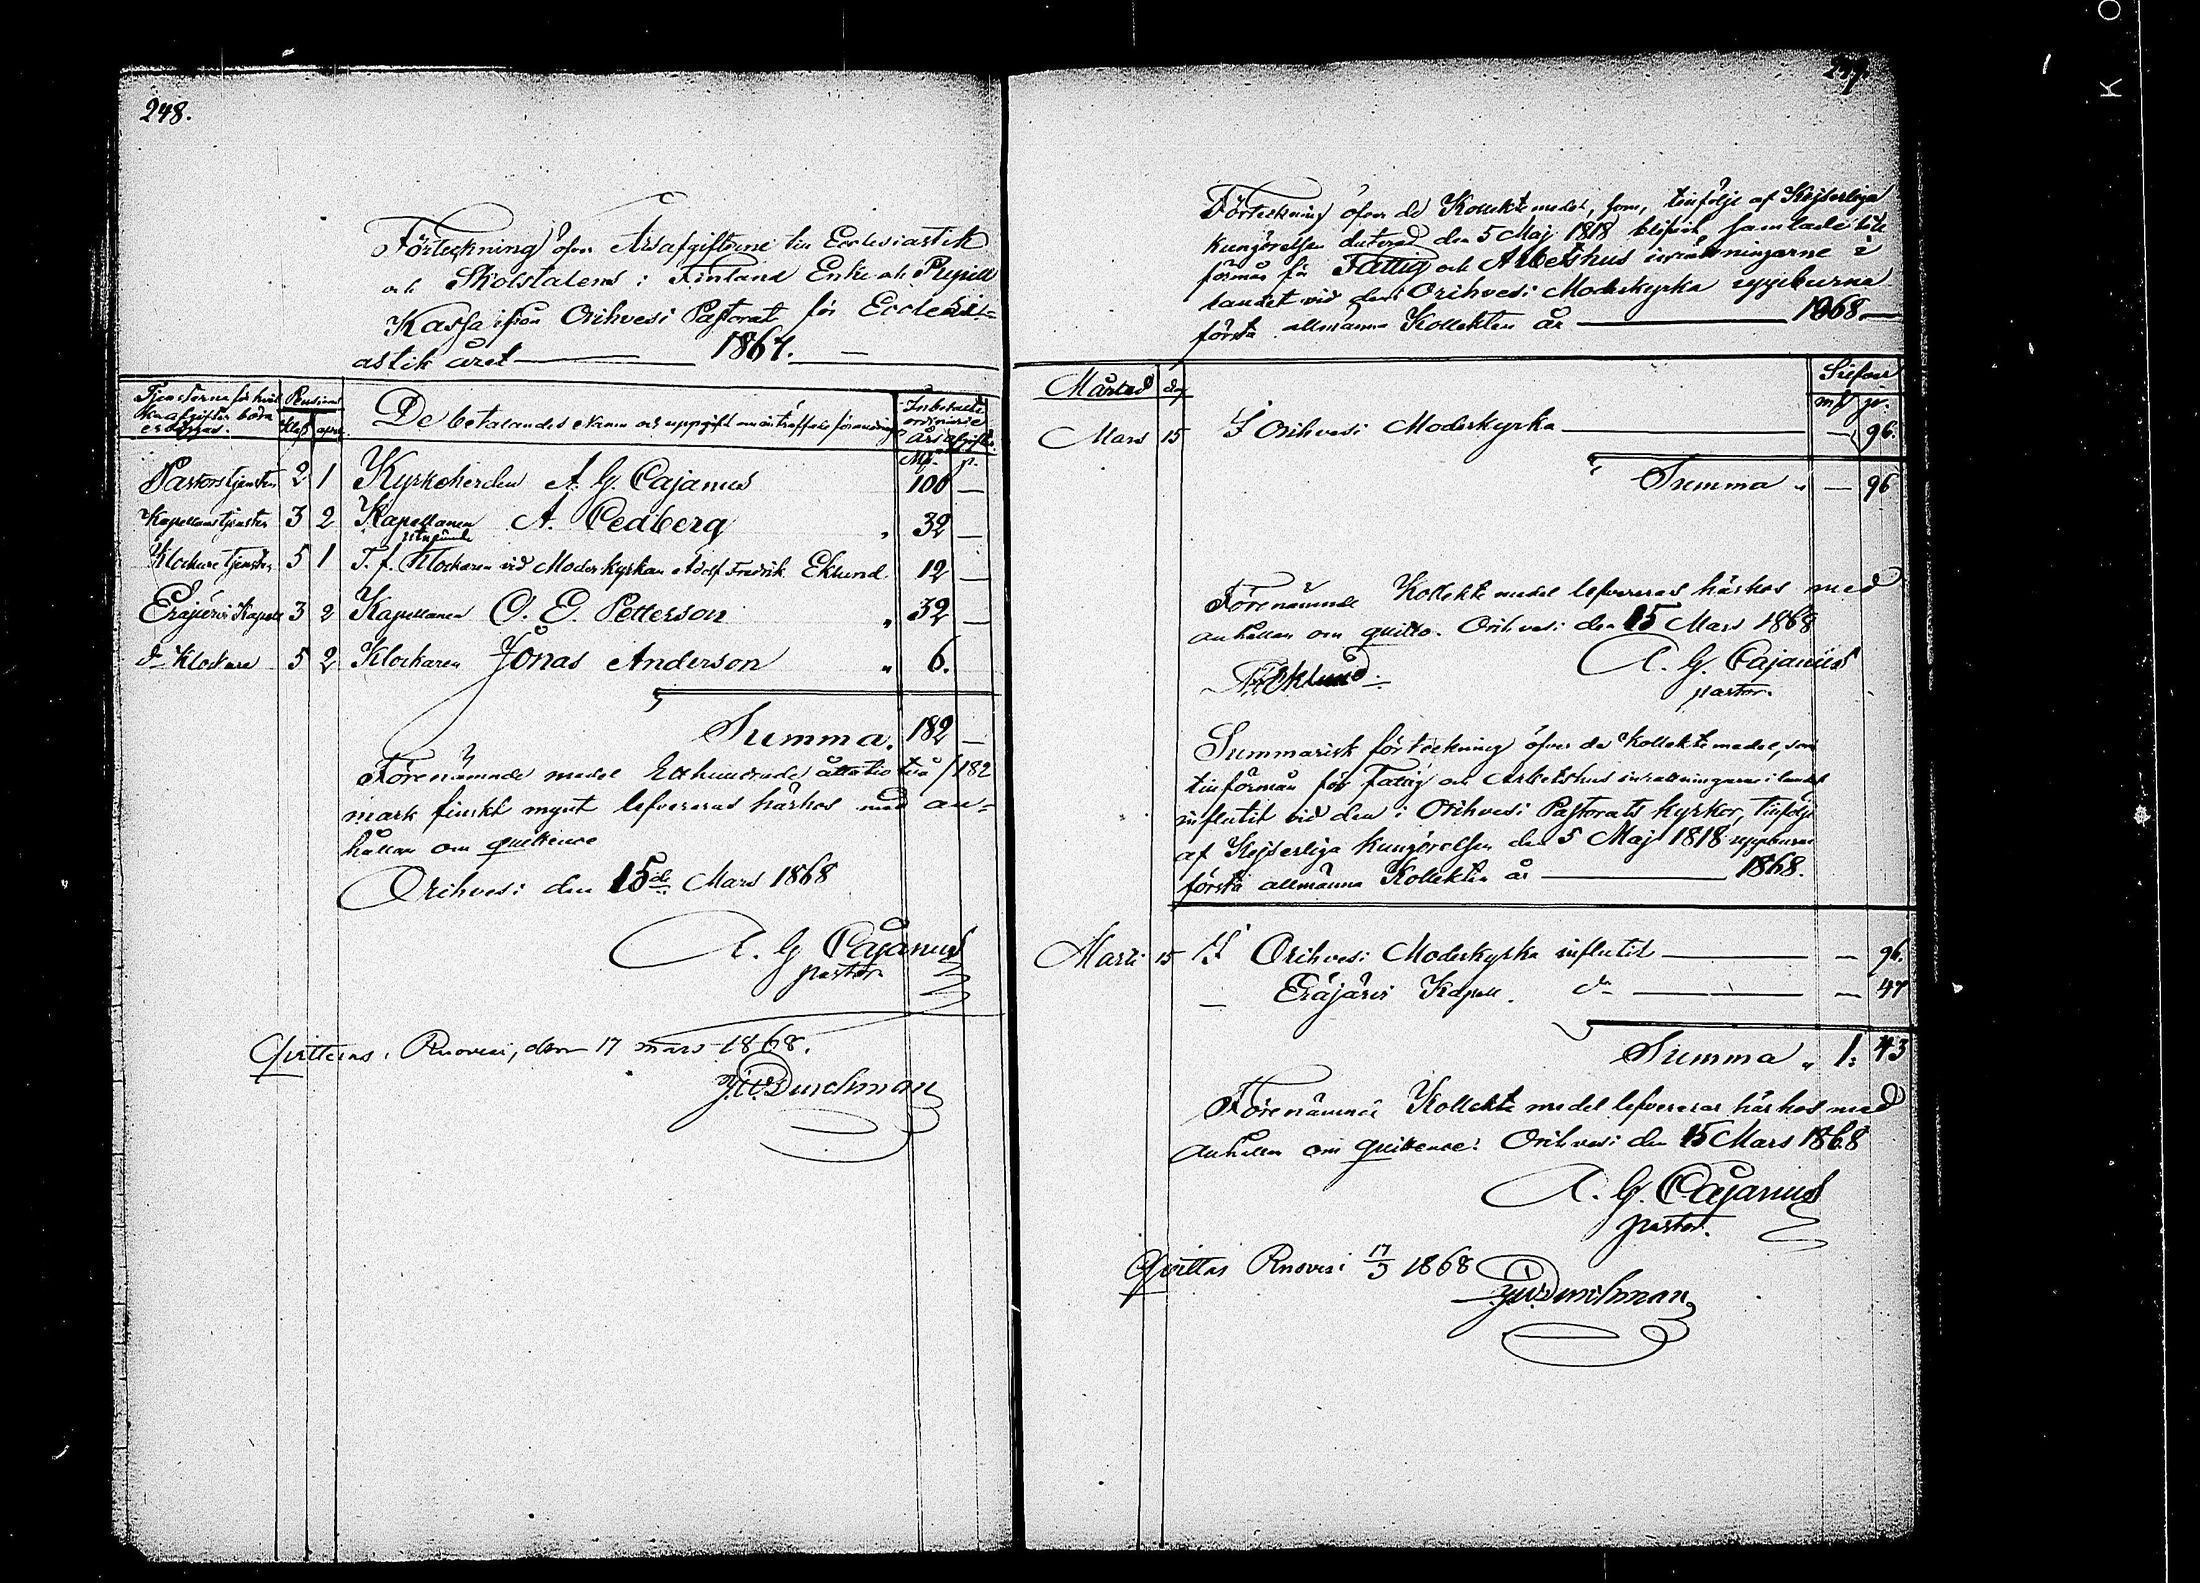 248.
Förteckning öfver Årsafgifterne till Ecclesiastik
och Skolstatens i Finland Enke och Pupill
Kassa ifrån Orihvesi Pastorat för Ecclesi-
astik året 1867.
Tjensterna för hvil- Pensions De betalandes namn och uppgift om inträffade förändring Inbetalte
ka afgifter böra klass ordinarie
erläggas. årsafgifter.
Mk. p.
Pastorstjensten 2 1 Kyrkoherden A. G. Cajanus 100 —
Kapellanstjensten 3 2 Kapellanen A. Cedberg " 32 —
Klockaretjensten 5 1 T. f. Klockaren vid Moderkyrkan Adolf Fredrik Eklund 12 —
Eräjärvi Kapell 3 2 Kapellanen O. E. Petterson " 32 —
do Klockare 5 2 Klockaren Jonas Anderson " 6.
Summa. 182 —
Förenämnde medel Etthundrade åttatio två /182
mark finskt mynt lefvereras härhos med an-
hållan om quittence
Orihvesi den 15de Mars 1868
A. G. Cajanus
pastor
Qvitteras, Ruovesi, den 17 mars 1868.
J.W. Durchman
249.
Förteckning öfver de Kollektmedel, som, till följe af Kejserliga
kungörelsen daterad den 5 Maj 1818 blifvit samlade till
förmån för Fattig och Arbetshus inrättningarne i
landet vid den i Orihvesi Moderkyrka uppburna
första allmänna Kollekten år 1868
Månad dag Silfver
mk p.
Mars 15 I Orihvesi Moderkyrka — 96.
Summa " — 96
Förenämnde Kollektmedel lefvereras härhos med
anhållan om quitto. Orihvesi den 15 Mars 1868
Eklund. A. G. Cajanus
pastor.
Summarisk förteckning öfver de Kollektmedel, som
till förmån för Fattig och Arbetshus inrättningarne i landet
influtit vid den i Orihvesi Pastorats kyrkor, till följe
af Kejserliga kungörelsen den 5 Maj 1818 uppburna
första allmänna Kollekten år 1868.
Mars 15 I Orihvesi Moderkyrka influtit — 96.
— Eräjärvi Kapell. do — 47
Summa " 1: 43
Förenämnde Kollekte medel lefvereras härhos med
anhållan om quittence. Orihvesi den 15 Mars 1868
A. G. Cajanus
pastor.
Qvitteras Ruovesi 17/3 1868
J.W. Durchman